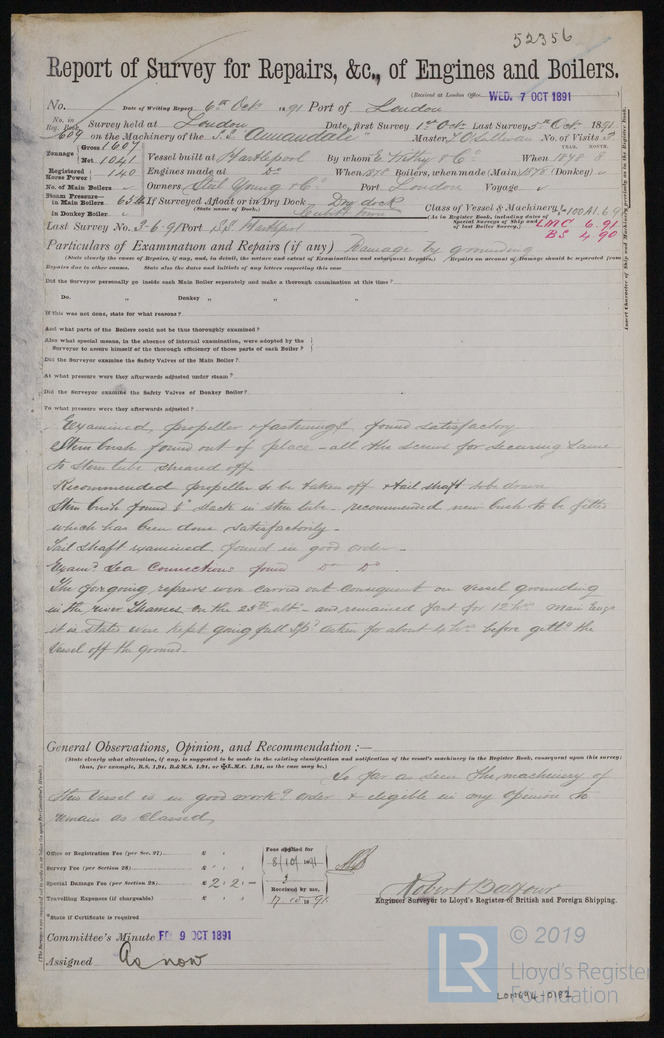 52356
Report of Survey for Repairs, &c., of Engines and Boilers.
(Received at London Office WED. 7 OCT 1891
No. Date of Writing Report 6th Oct 1891 Port of London
No. in Reg. Book Survey held at London Date, first Survey 1st Oct Last Survey 5th Oct 1891
609 on the Machinery of the S.S. "Annandale" Master No. of Visits 3
Tonnage Gross 1607 Net 1041 Vessel built at Hartlepool By whom E Withy & Co When 1878 8 YEAR. MONTH.
Registered Horse Power 140 Engines made at Do When 1878 Boilers, when made (Main) 1878 (Donkey) ✓
No. of Main Boilers ✓ Owners Steel Young & Co Port London Voyage ✓
Steam Pressure— in Main Boilers 65 lb If Surveyed Afloat or in Dry Dock Dry dock
in Donkey Boiler ✓ (State name of Dock.) Class of Vessel & Machinery 100A1. 6.91
(As in Register Book, including dates of Special Surveys of Ship and of last Boiler Survey.) LMC 6.91
BS 4 90
Last Survey No. 3-6-91 Port Hartlepool
Particulars of Examination and Repairs (if any) Damage by grounding
(State clearly the cause of Repairs, if any, and, in detail, the nature and extent of Examinations and subsequent Repairs.) Repairs on account of Damage should be separated from
Repairs due to other causes. State also the dates and initials of any letters respecting this case
Did the Surveyor personally go inside each Main Boiler separately and make a thorough examination at this time?
Do. „ Donkey „ „ „
If this was not done, state for what reasons?
And what parts of the Boilers could not be thus thoroughly examined?
Also what special means, in the absence of internal examination, were adopted by the
Surveyor to assure himself of the thorough efficiency of those parts of each Boiler?
Did the Surveyor examine the Safety Valves of the Main Boiler?
At what pressure were they afterwards adjusted under steam?
Did the Surveyor examine the Safety Valves of Donkey Boiler?
To what pressure were they afterwards adjusted?
Examined, propeller & fastenings found satisfactory
Stern bush found out of place - all the screws for securing same
to Stern tube sheared off.
Recommended propeller to be taken off & tail shaft to be drawn
Stern bush found slack in stern tube - recommended new bush to be fitted
which has been done satisfactorily -
Tail shaft examined, found in good order -
Examd Sea Connections found Do Do
The forgoing repairs were carried out consequent on vessel grounding
in the river Thames on the 25th ult - and remained fast for 12 hrs main engs
it is stated were kept going full Spd astern for about 4 hrs before gettg the
vessel off the ground -
General Observations, Opinion, and Recommendation :—
(State clearly what alteration, if any, is suggested to be made in the existing classification and notification of the vessel's machinery in the Register Book, consequent upon this survey;
thus, for example, B.S. 1,91, B.&M.S. 1,91, or ✠L.M.C. 1,91, as the case may be.)
So far as seen the machinery of
this vessel is in good workg order & eligible in my opinion to
remain as classed,
Office or Registration Fee (per Sec. 27) £
Survey Fee (per Section 28) £
Special Damage Fee (per Section 28) £ 2 : 2 : -
Travelling Expenses (if chargeable) £
Fees applied for
8/10/1891
Received by me,
17.10.1891
*State if Certificate is required
Robert Balfour
Engineer Surveyor to Lloyd's Register of British and Foreign Shipping.
Committee's Minute FRI 9 OCT 1891
Assigned As now
LR
© 2019
Lloyd's Register
Foundation
LON694-0182